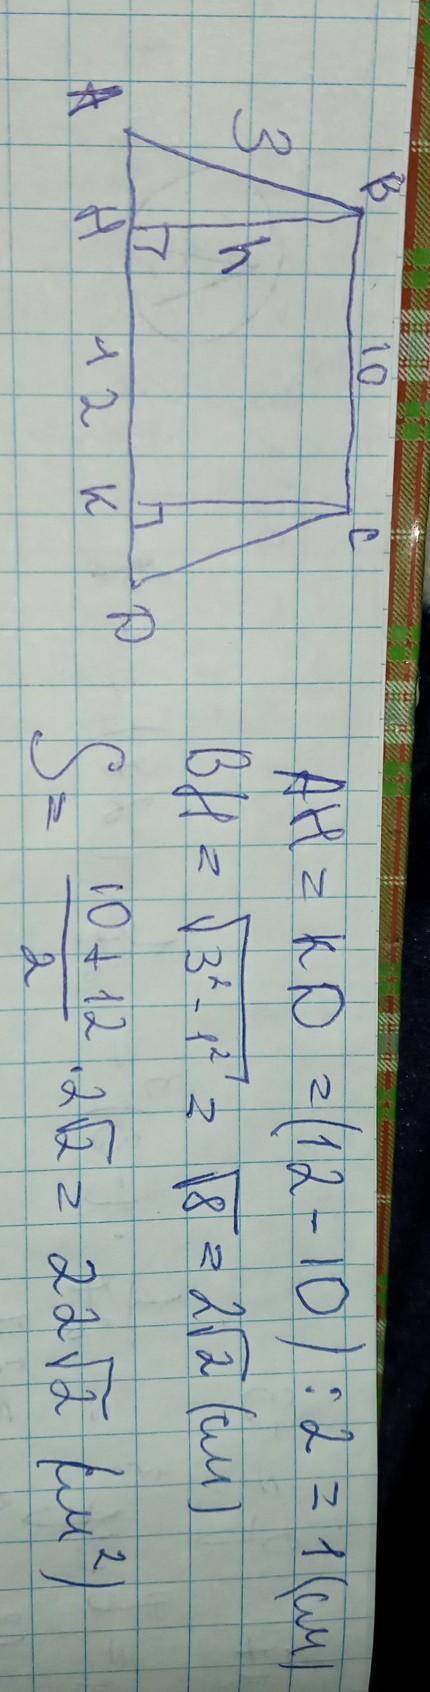 B 10 C
3 h
A H 12 K D
AH = KD = (12 - 10) : 2 = 1 (см)
BH = √3² - 1² = √8 = 2√2 (см)
S = 10 + 12 / 2 · 2√2 = 22√2 (см²)